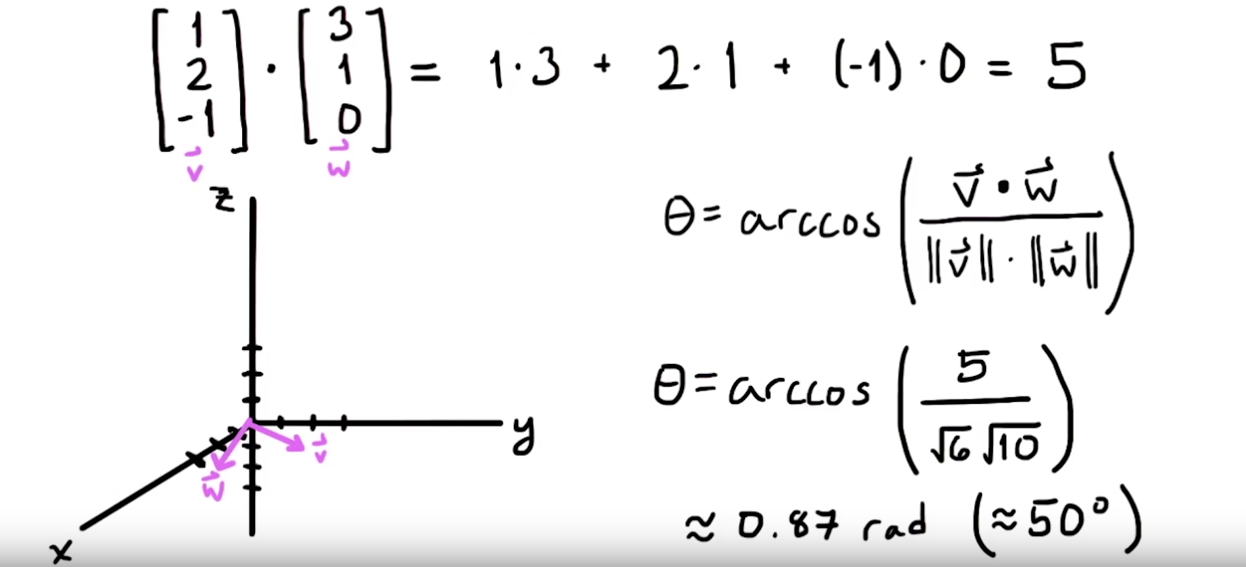 [1 2 -1] · [3 1 0] = 1·3 + 2·1 + (-1)·0 = 5
v⃗ w⃗
z
θ = arccos (v⃗ • w⃗ / ‖v⃗‖ · ‖w⃗‖)
θ = arccos (5 / √6 √10)
y
v⃗
w⃗
≈ 0.87 rad (≈ 50°)
x